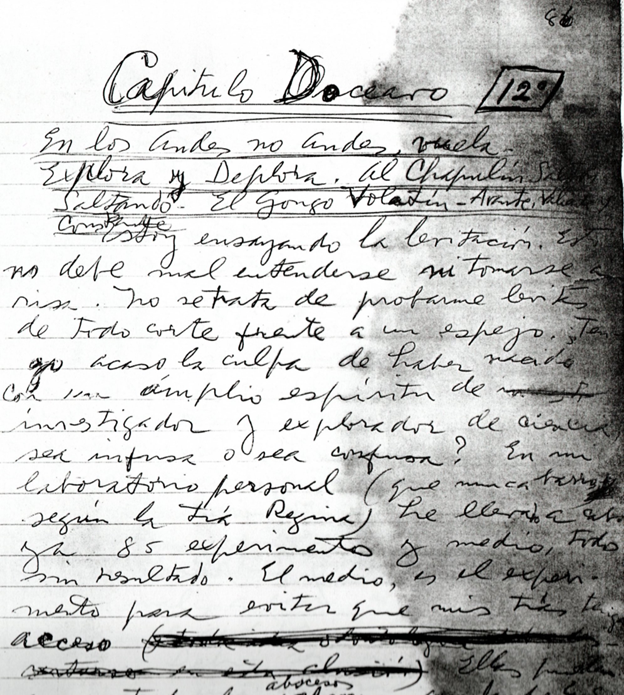 86
Capítulo Doceavo 12º
En los Andes no Andes, vuela.
Explora y Deplora. Al Chapulín
Saltando. El Gongo Volatín - Arante,
Constante
Estoy ensayando la levitación.
no debe mal entenderse ni tomarse a
risa. No se trata de probarme levitas
de todo corte frente a un espejo. ¿Ten
go acaso la culpa de haber nacido
con un amplio espíritu de
investigador y explorador de ciencia
sea infusa o sea confusa? En mi
laboratorio personal (que nunca barro
según la tía Regina) he llevado a cabo
ya 85 experimentos y medio, todo
sin resultado. El medio, es el experi-
mento para evitar que mis tías
acceso
Ellas
abscesos